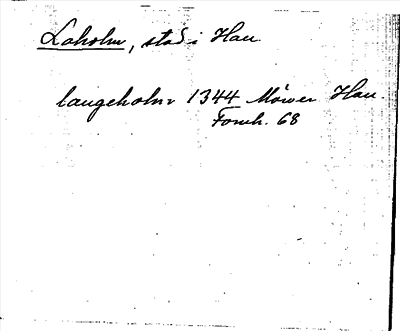 Laholm, stad i Hall
laugeholm 1344 Möwer Hall.
Fornh. 68